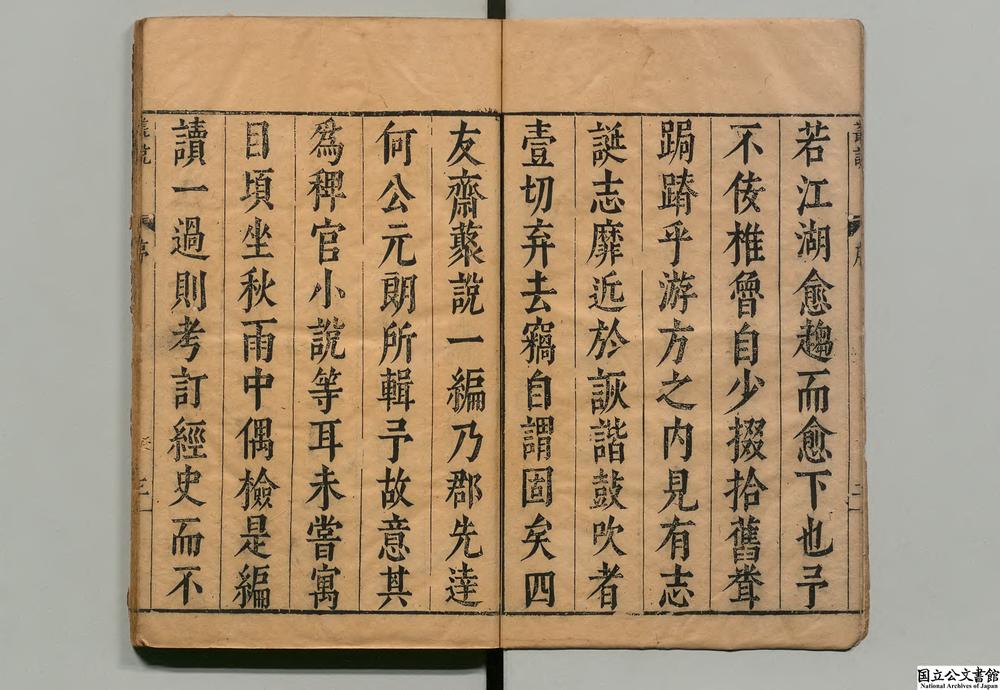 若江湖愈趨而愈下也予
不佞椎魯自少掇拾舊聞
跼蹐乎游方之内見有志
誕志靡近於詼諧鼓吹者
壹切弃去竊自謂固矣四
友齋叢說一編乃郡先達
何公元朗所輯予故意其
爲稗官小說等耳未嘗寓
目頃坐秋雨中偶檢是編
讀一過則考訂經史而不
叢說
序
三
国立公文書館
National Archives of Japan